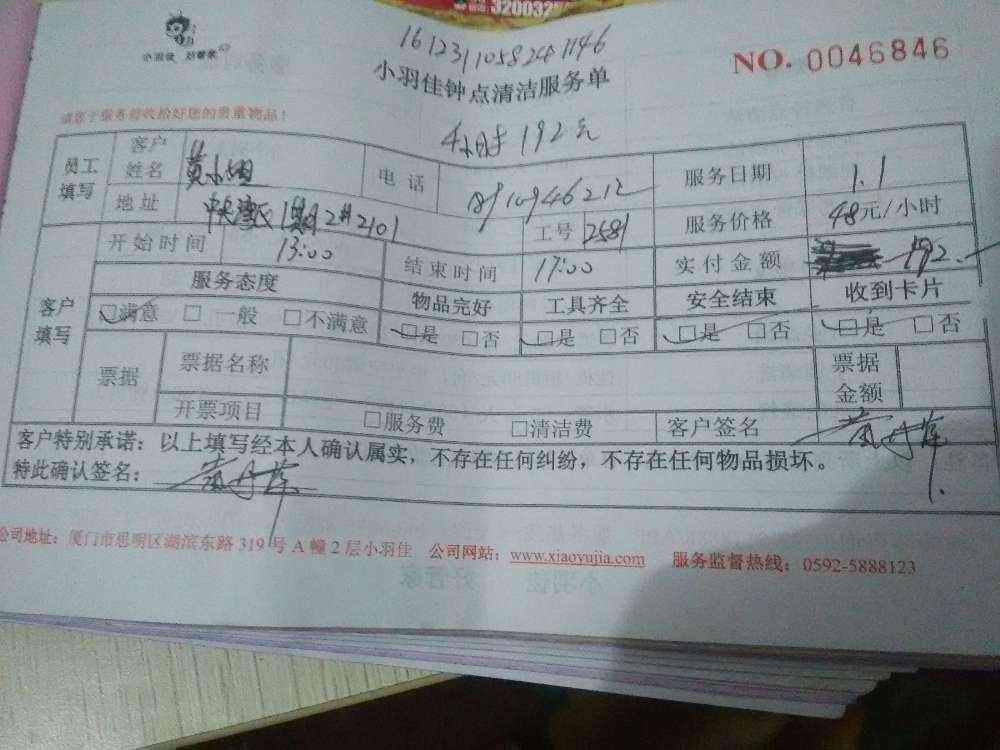 320032
小羽佳 好管家
16123110582481146
NO. 0046846
小羽佳钟点清洁服务单
请您于服务前收拾好您的贵重物品！
4小时 192元
员工填写 客户姓名 黄小姐 电话 服务日期 1.1
地址 中央湾区 2101 工号 2581 服务价格 48元/小时
客户填写 开始时间 13:00 结束时间 17:00 实付金额 192.
服务态度 物品完好 工具齐全 安全结束 收到卡片
□满意 □一般 □不满意 □是 □否 □是 □否 □是 □否 □是 □否
票据 票据名称 票据金额
开票项目 □服务费 □清洁费 客户签名
客户特别承诺：以上填写经本人确认属实，不存在任何纠纷，不存在任何物品损坏。
特此确认签名：
公司地址：厦门市思明区湖滨东路 319 号 A 幢 2 层小羽佳 公司网站：www.xiaoyujia.com 服务监督热线：0592-5888123